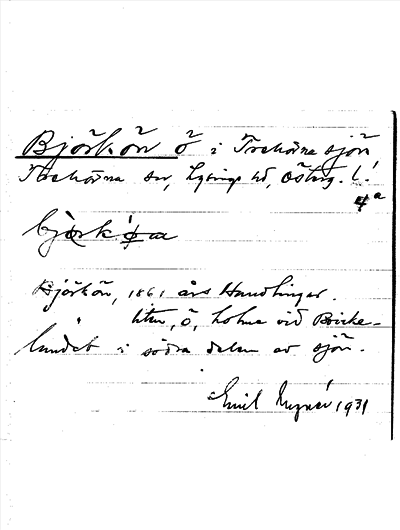 Björkön ö i Trehörna sjön
Trehörna sn, Lysings hd, Österg. l.
4a
Björkön, 1861 års Handlingar.
liten, ö, holme vid Bocke-
landet i södra delen av sjön.
Emil 1931